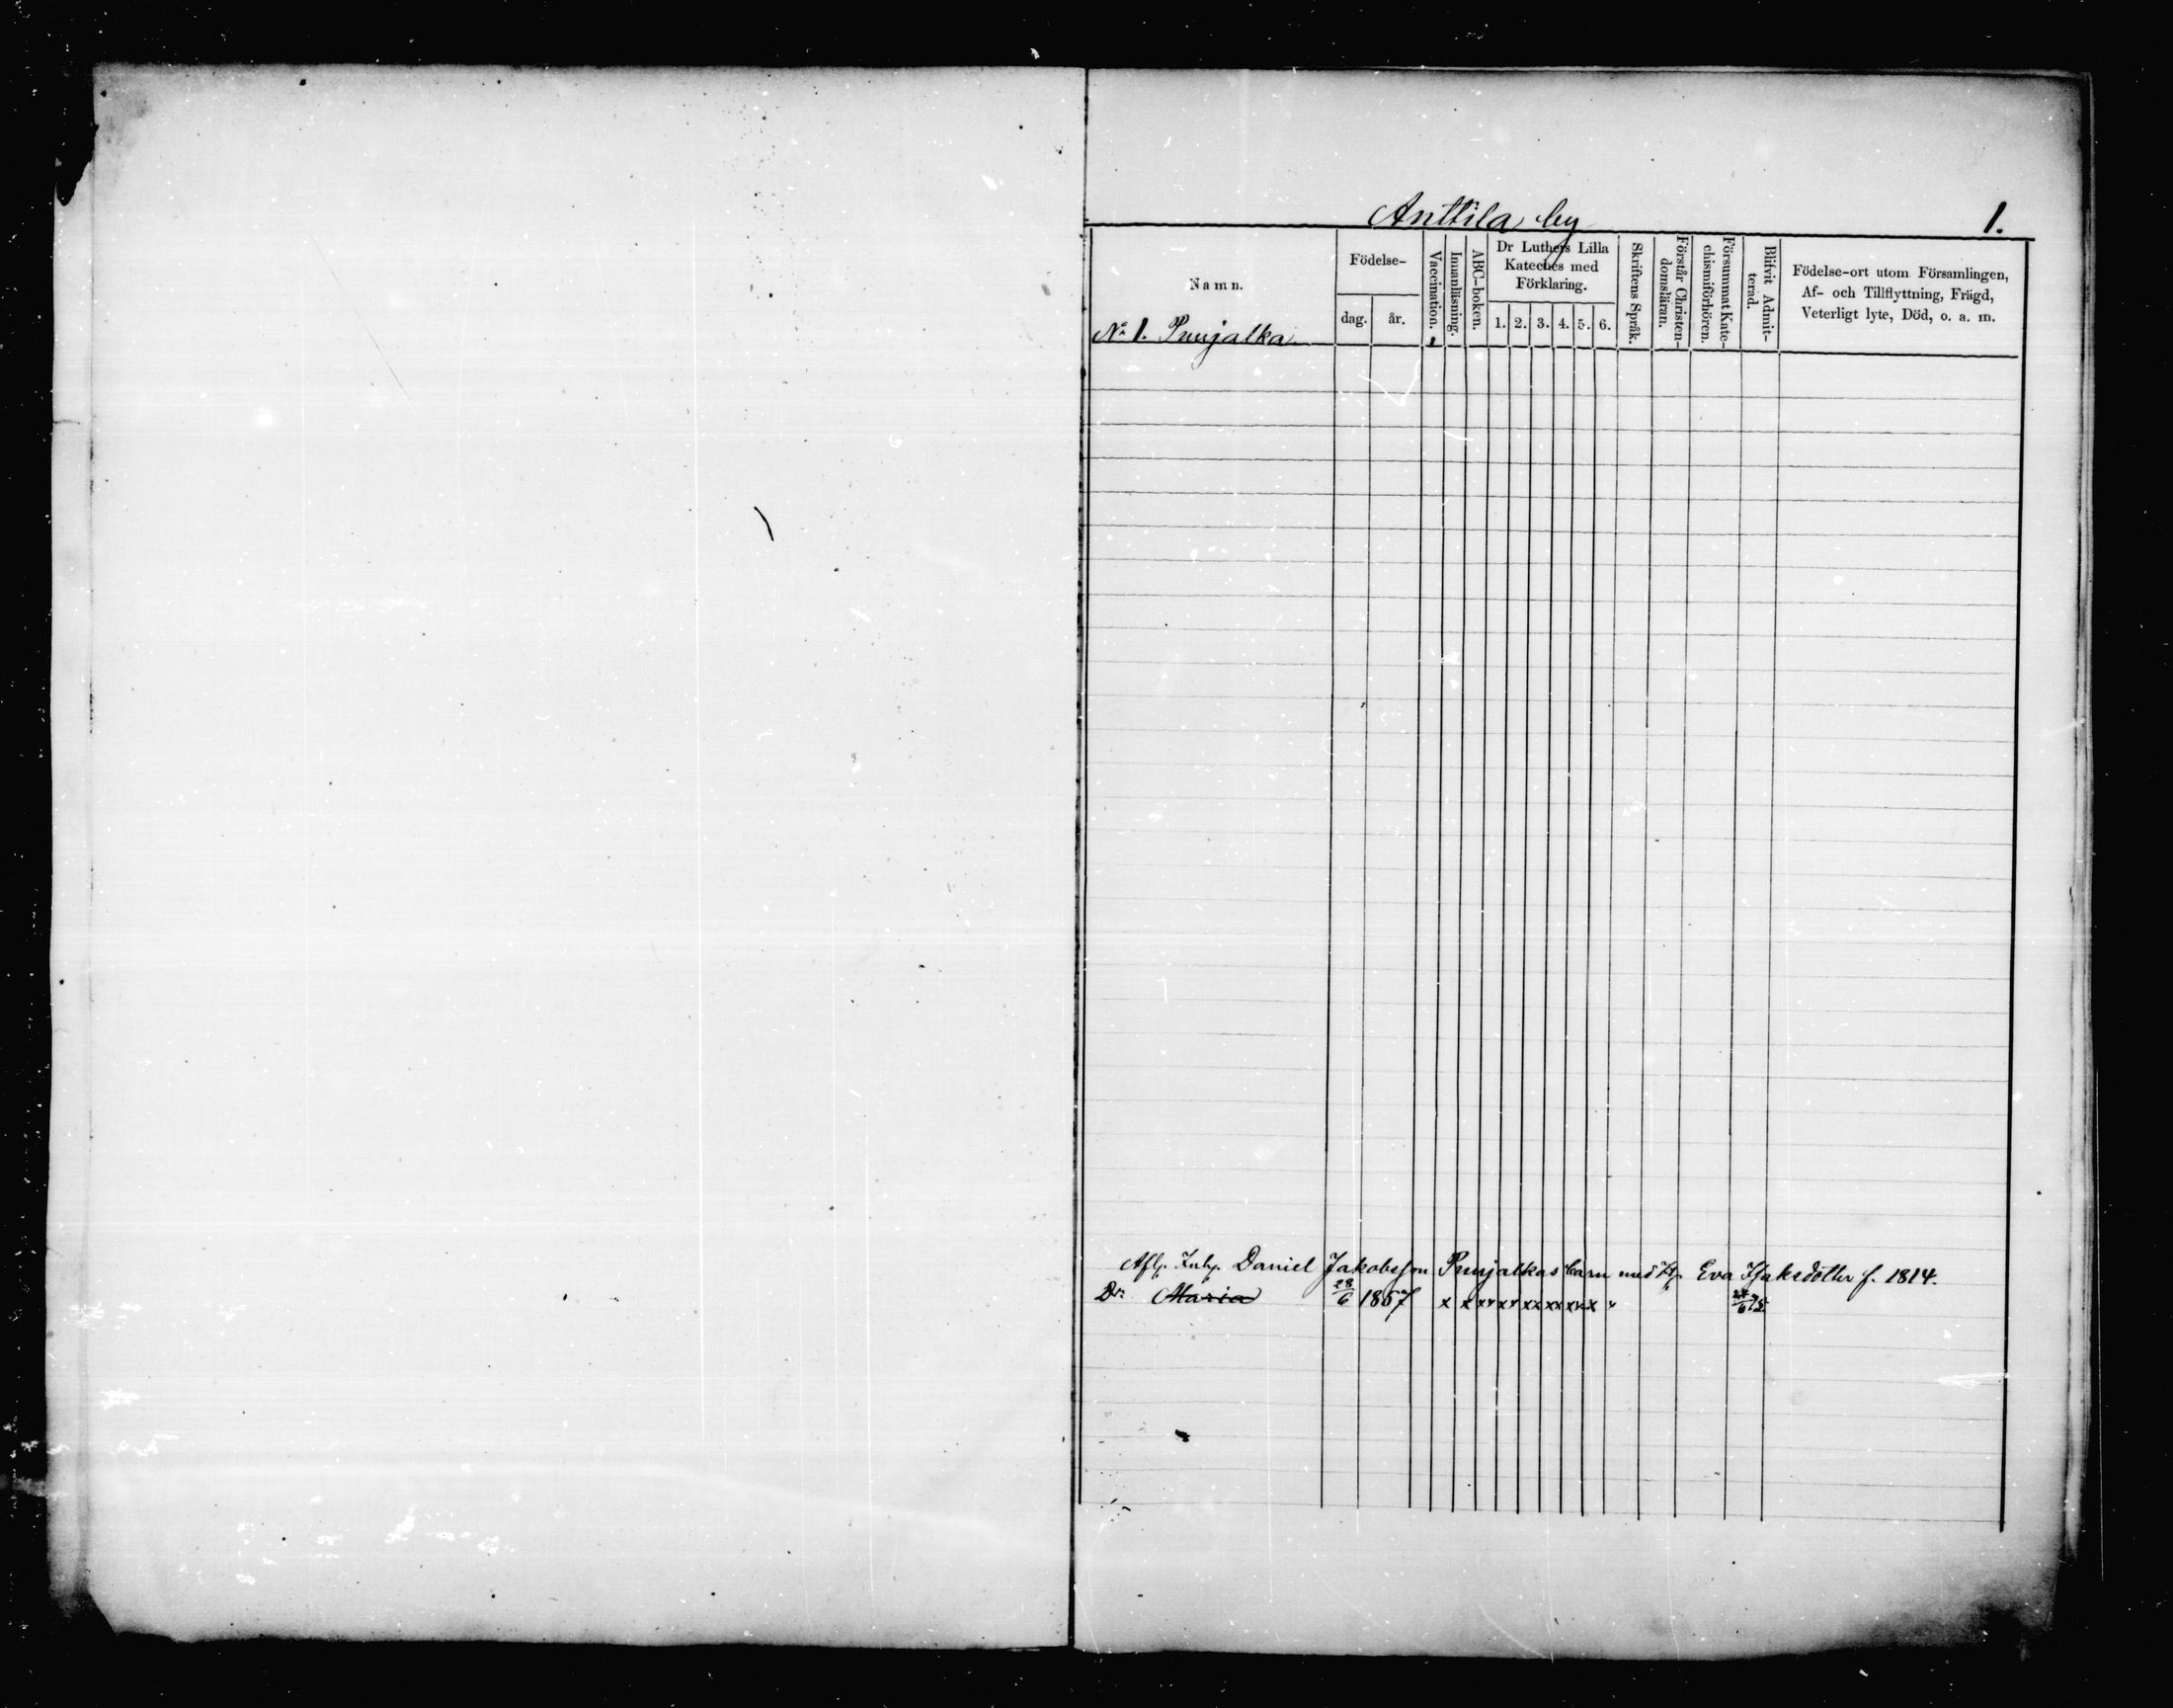 Anttila by
1.
Namn.
Födelse-
dag.
år.
Vaccination.
Innanläsning.
ABC-boken.
Dr Luthers Lilla
Kateches med
Förklaring.
1. 2. 3. 4. 5. 6.
Skriftens Språk.
Förstår Christen-
domsläran.
Försummat Kate-
chismiförhören.
Blifvit Admit-
terad.
Födelse-ort utom Församlingen,
Af- och Tillflyttning, Frägd,
Veterligt lyte, Död, o. a. m.
No 1. Punjalka
Afl. Inh. Daniel Jakobsson Punjalkas barn med Eva Isaksdotter f. 1814.
Dr. Maria 28/6 1857 x x xx xx xx xx xx x